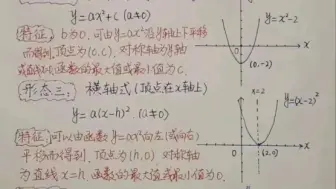 y=ax²+c (a≠0)
y=x²-2
(特征) b为0,可由y=ax²沿y轴上下平移
而得到,顶点为(0,c),对称轴为y轴
函数的最大值或最小值为c.
(0,-2)
形态三: 横轴式(顶点在x轴上)
x=2
y=a(x-h)² (a≠0)
y=(x-2)²
(特征) 可以由函数y=ax²向左(或向右)
平移而得到,顶点为(h,0) 对称轴
(2,0)
为直线x=h.函数的最大值或最小值为0.